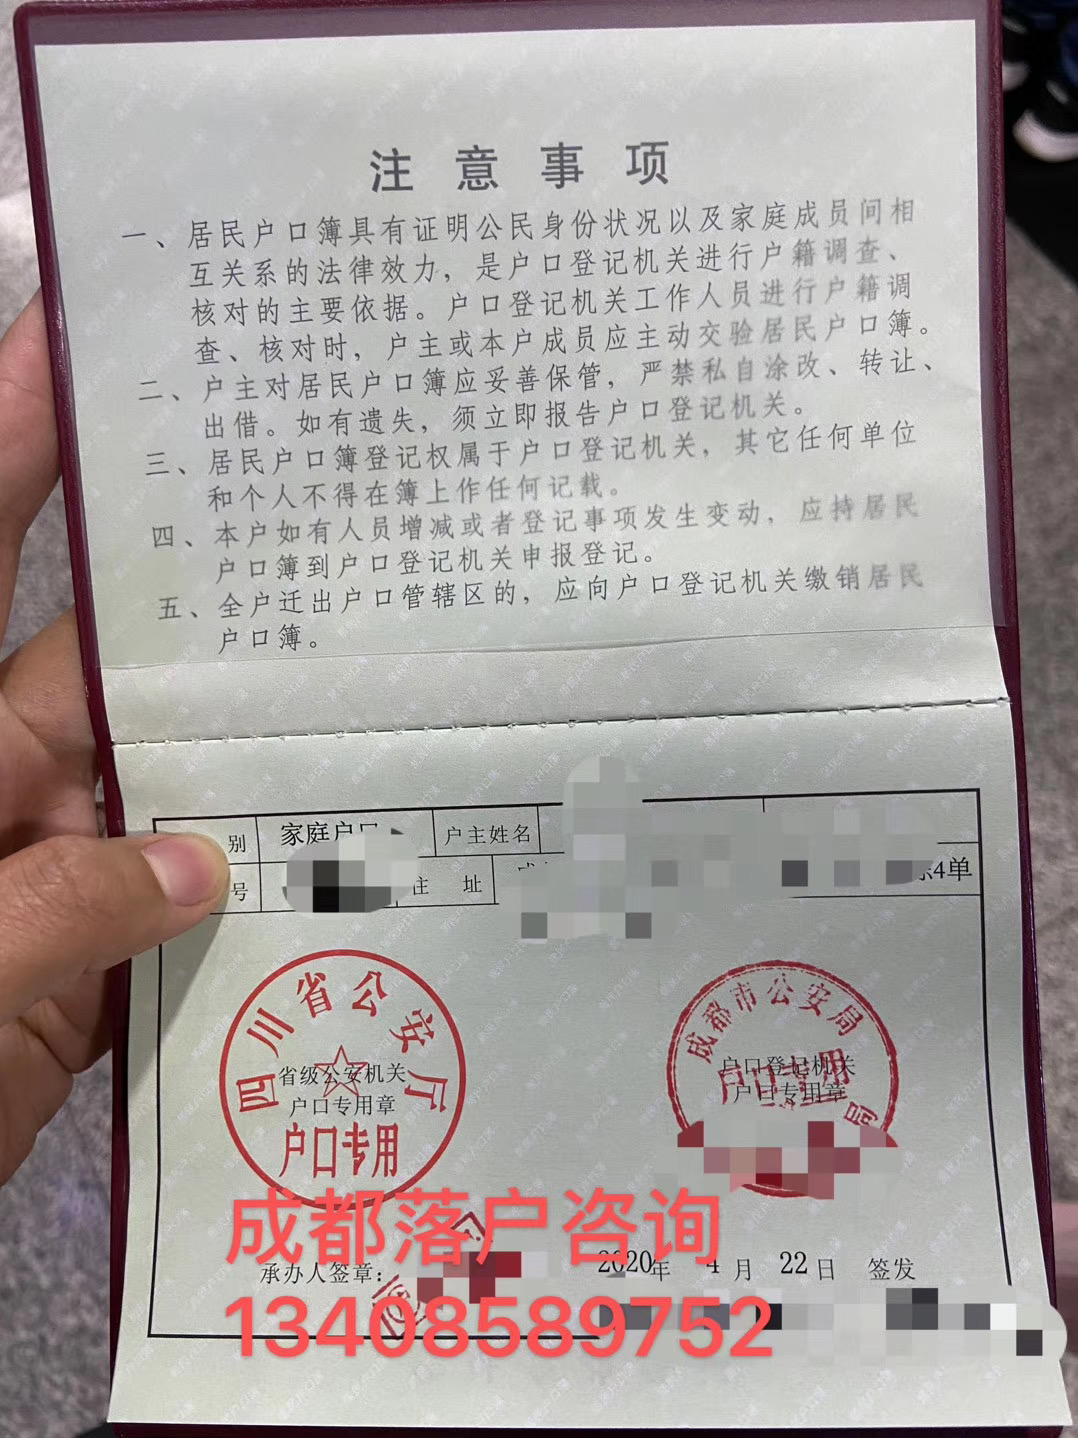 注意事项
一、居民户口簿具有证明公民身份状况以及家庭成员间相
互关系的法律效力，是户口登记机关进行户籍调查、
核对的主要依据。户口登记机关工作人员进行户籍调
查、核对时，户主或本户成员应主动交验居民户口簿。
二、户主对居民户口簿应妥善保管，严禁私自涂改、转让、
出借。如有遗失，须立即报告户口登记机关。
三、居民户口簿登记权属于户口登记机关，其它任何单位
和个人不得在簿上作任何记载。
四、本户如有人员增减或者登记事项发生变动，应持居民
户口簿到户口登记机关申报登记。
五、全户迁出户口管辖区的，应向户口登记机关缴销居民
户口簿。
别 家庭户口 户主姓名
号 住 址 4单
四川省公安厅
省级公安机关
户口专用章
户口专用
成都市公安局
户口登记机关
户口专用
户口专用章
成都落户咨询
承办人签章： 2020年 4月 22日 签发
13408589752